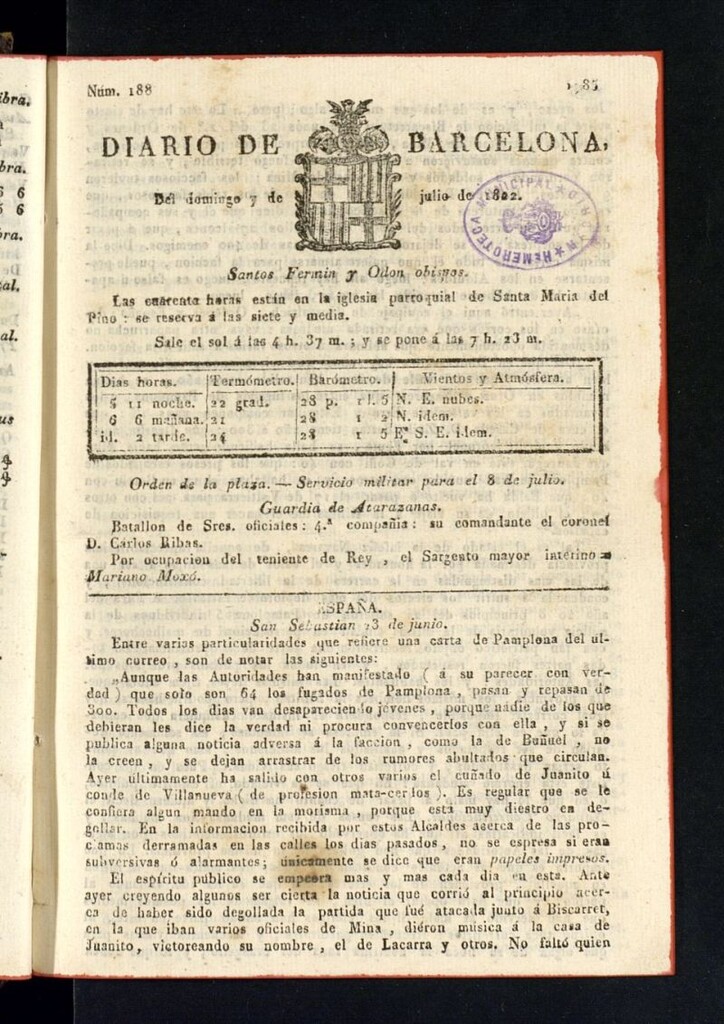 Núm. 188
DIARIO DE BARCELONA,
Del domingo 7 de julio de 1822.
HEMEROTECA MUNICIPAL
Santos Fermin y Odon obispos.
Las cuarenta horas están en la iglesia parroquial de Santa María del
Pino: se reserva á las siete y media.
Sale el sol á las 4 h. 37 m.; y se pone á las 7 h. 23 m.
Dias horas. Termómetro. Barómetro. Vientos y Atmósfera.
5 11 noche. 22 grad. 28 p. 1 l. 5 N. E. nubes.
6 6 mañana. 21 28 1 2 N. idem.
id. 2 tarde. 24 28 1 5 E. S. E. idem.
Orden de la plaza. — Servicio militar para el 8 de julio.
Guardia de Atarazanas.
Batallon de Sres. oficiales: 4.ª compañia: su comandante el coronel
D. Cárlos Ribas.
Por ocupacion del teniente de Rey, el Sargento mayor interino =
Mariano Moxó.
ESPAÑA.
San Sebastian 23 de junio.
Entre varias particularidades que refiere una carta de Pamplona del úl-
timo correo, son de notar las siguientes:
„Aunque las Autoridades han manifestado ( á su parecer con ver-
dad ) que solo son 64 los fugados de Pamplona, pasan y repasan de
300. Todos los dias van desapareciendo jóvenes, porque nadie de los que
debieran les dice la verdad ni procura convencerlos con ella, y si se
publica alguna noticia adversa á la faccion, como la de Buñuel, no
la creen, y se dejan arrastrar de los rumores abultados que circulan.
Ayer últimamente ha salido con otros varios el cuñado de Juanito ú
conde de Villanueva ( de profesion mata-cerdos ). Es regular que se le
confiera algun mando en la morisma, porque está muy diestro en de-
gollar. En la informacion recibida por estos Alcaldes acerca de las pro-
clamas derramadas en las calles los dias pasados, no se espresa si eran
subversivas ó alarmantes; únicamente se dice que eran papeles impresos.
El espíritu público se empeora mas y mas cada dia en esta. Ante
ayer creyendo algunos ser cierta la noticia que corrió al principio acer-
ca de haber sido degollada la partida que fué atacada junto á Biscarret,
en la que iban varios oficiales de Mina, diéron música á la casa de
Juanito, victoreando su nombre, el de Lacarra y otros. No faltó quien